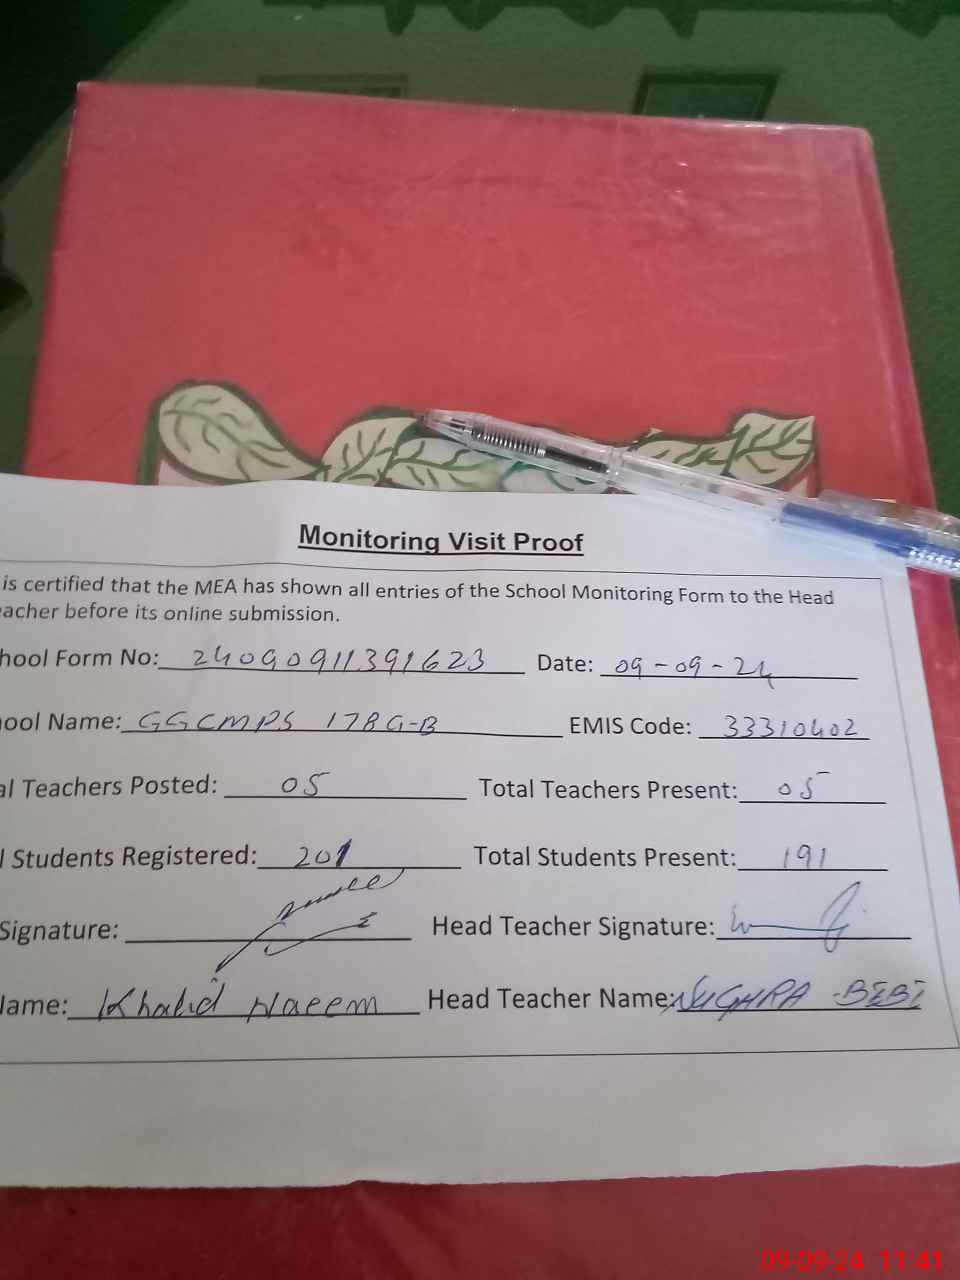 Monitoring Visit Proof
is certified that the MEA has shown all entries of the School Monitoring Form to the Head
eacher before its online submission.
hool Form No: 24090911391623 Date: 09-09-24
ool Name: GGCMPS 178 G-B EMIS Code: 33310402
al Teachers Posted: 05 Total Teachers Present: 05
l Students Registered: 201 Total Students Present: 191
Signature: Head Teacher Signature:
lame: Khalid Naeem Head Teacher Name: SUGHRA BEBI
09-09-24 11:41